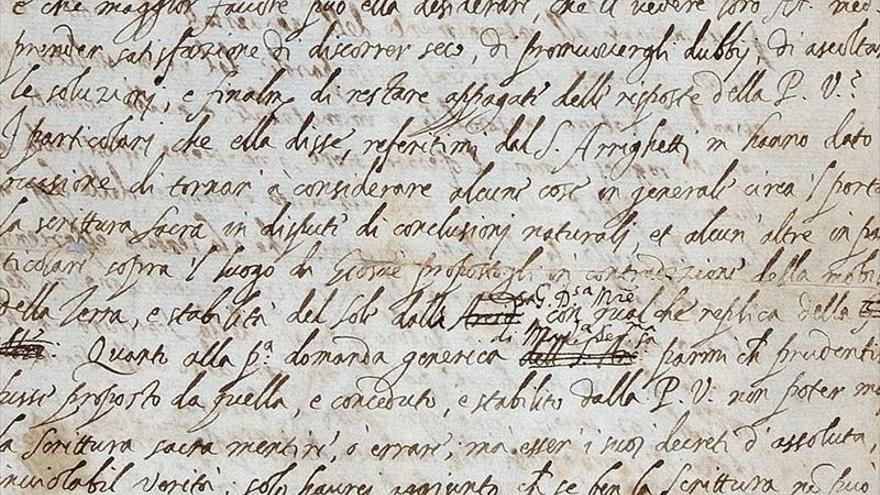 e che maggior favore può ella desiderare, che il vedere loro Alt. med.
prender satisfazione di discorrer seco, di promuovergli dubbij, di ascoltar
le soluzionj, e finalm. di restare appagati delle risposte della P. V.?
I particolarj che ella disse, referitimi dal S. Arrighetti, m hanno dato
occasione di tornar à considerare alcune cose in generale circa 'l portar
la scrittura sacra in dispute di conclusionj naturalj, et alcun' altre in par
ticolare sopra 'l luogo di Giosuè propostogli in contradizione della mobil
della Terra, e stabilità del Sole dalla G. D.sa Mre con qualche replica della
di M S.ma
Quanto alla p.a domanda generica parmi ch prudentis
sissi proposto da quella, e conceduto, e stabilito dalla P. V. non poter mai
la Scrittura sacra mentire, ò errare, ma esser i suoi decreti d'assoluta,
inviolabil verità; solo haurei aggiunto ch se ben la Scrittura nò può